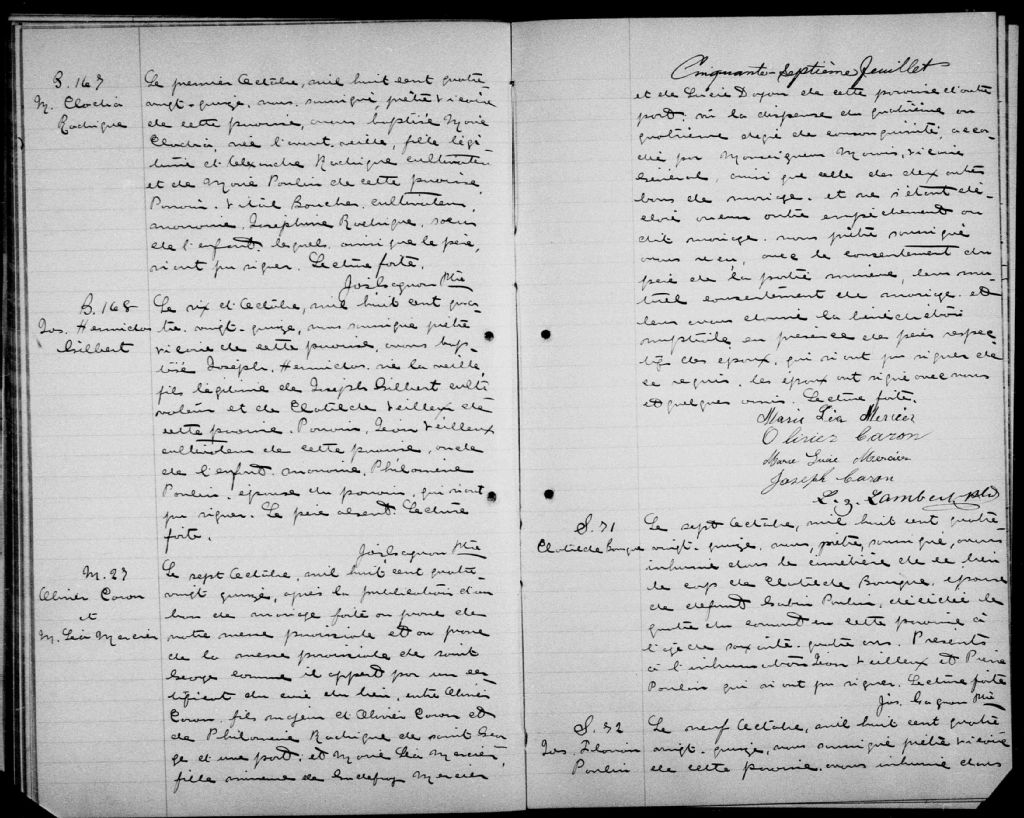 B. 167
M. Clodia
Rodrigue
Le premier Octobre, mil huit cent quatre
vingt-quinze, nous, soussigné, prêtre vicaire
de cette paroisse, avons baptisé Marie
Clodia, née l'avant-veille, fille légi-
time d' Rodrigue cultivateur
et de Marie Poulin de cette paroisse.
Parrain, Boucher, cultivateur,
marraine, Joséphine Rodrigue, soeur
de l'enfant, lesquels, ainsi que le père,
n'ont pu signer. Lecture faite.
Jos. Gagnon Ptre
B. 168
Jos. Hermidas
Gilbert
Le six d'Octobre, mil huit cent qua-
tre-vingt-quinze, nous soussigné prêtre
vicaire de cette paroisse, avons bap-
tisé Joseph Hermidas, né la veille,
fils légitime de Joseph Gilbert culti
vateur et de Clotilde Veilleux de
cette paroisse. Parrain, Léon Veilleux
cultivateur de cette paroisse, oncle
de l'enfant, marraine Philomène
Poulin, épouse du parrain, qui n'ont
pu signer. Le père absent. Lecture
faite.
Jos. Gagnon Ptre
M. 27
Olivier Caron
et
M. Léa Mercier
Le sept Octobre, mil huit cent quatre-
vingt quinze, après la publication d'un
ban de mariage faite au prône de
notre messe paroissiale et au prône
de la messe paroissiale de saint
George comme il appert par un cer-
tificat du curé du lieu, entre Olivier
Caron, fils majeur d'Olivier Caron et
de Philomène Rodrigue de saint Geor
ge d'une part, et Marie Léa Mercier,
fille mineure de Godefroy Mercier
Cinquante-Septième feuillet
et de Lucie Doyon de cette paroisse d'autre
part, vu la dispense du quatrième au
quatrième degré de consanguinité, accor-
dé par Monseigneur Marois, vicaire
Général, ainsi que celle des deux autres
bans de mariage, et ne s'étant dé-
claré aucun autre empêchement au
dit mariage, nous prêtre soussigné
avons reçu, avec le consentement du
père de la partie mineure, leur mu-
tuel consentement de mariage, et
leur avons donné la bénédiction
nuptiale, en présence des pères respec-
tifs des époux, qui n'ont pu signer de
ce requis, les époux ont signé avec nous
et quelques amis. Lecture faite.
Marie Léa Mercier
Olivier Caron
Marie Lucie Mercier
Joseph Caron
L. Z. Lambert, Ptre
S. 71
Clotilde Bougue
Le sept Octobre, mil huit cent quatre-
vingt-quinze, nous, prêtre, soussigné, avons
inhumé dans le cimetière de ce lieu
le corps de Clotilde Bougue, épouse
de défunt Gabin Poulin, décédée le
quatre du courant en cette paroisse à
l'âge de soixante-quatre ans. Présents
à l'inhumation Léon Veilleux et Pierre
Poulin qui n'ont pu signer. Lecture faite
Jos. Gagnon Ptre
S. 72
Jos.
Poulin
Le neuf Octobre, mil huit cent quatre
vingt-quinze, nous soussigné prêtre vicaire
de cette paroisse, avons inhumé dans